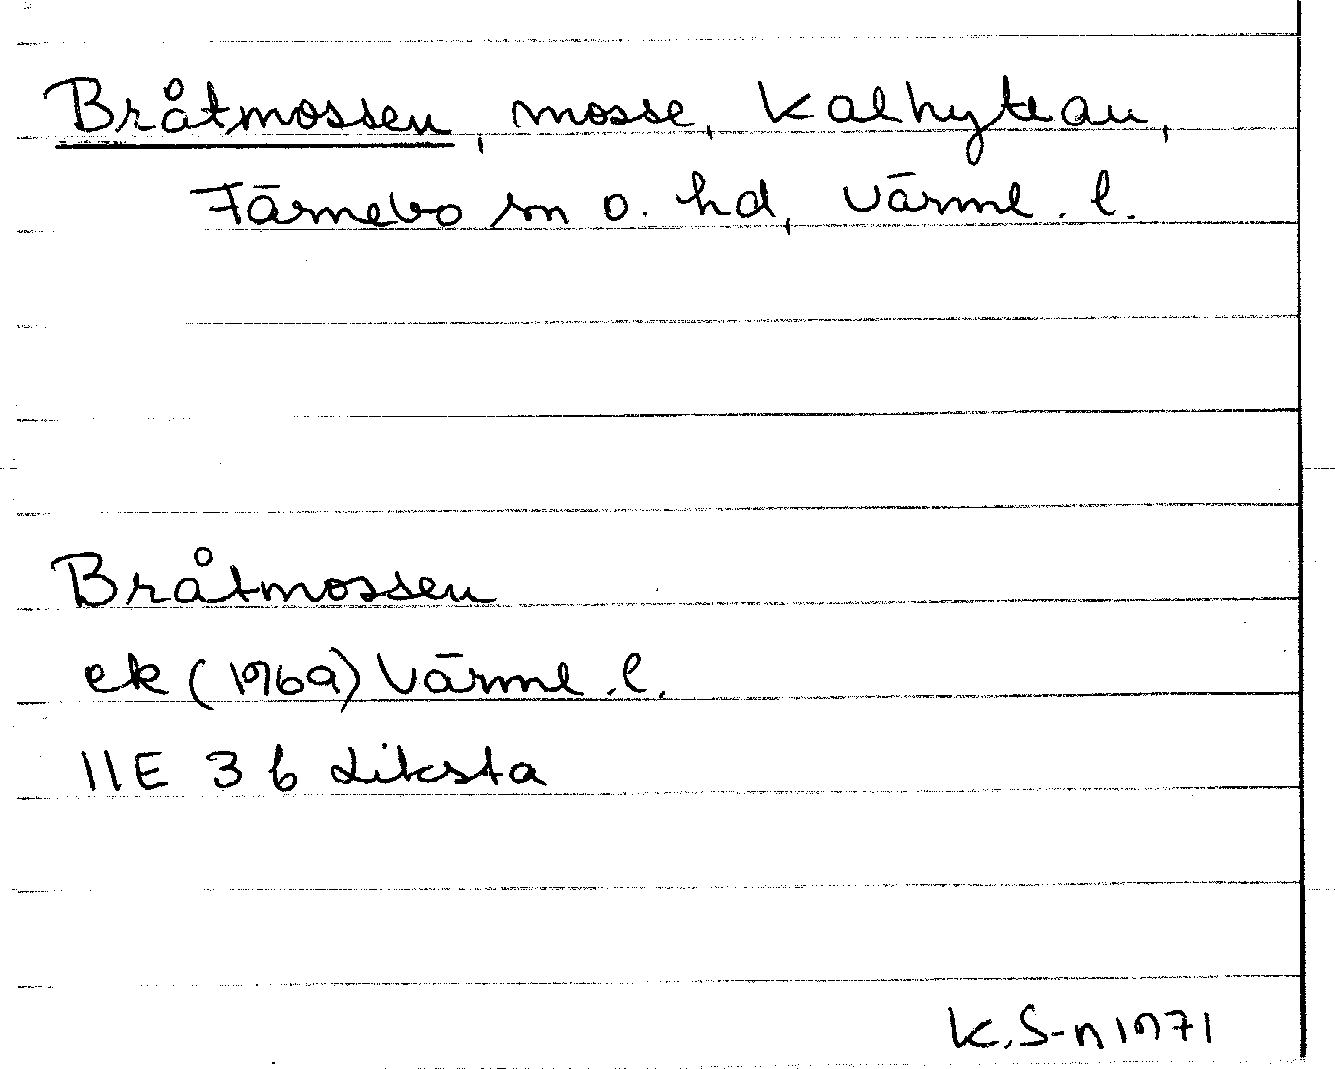 Bråtmossen, mosse, Kalhyttan,
Färnebo sn o. hd, Värml. l.
Bråtmossen
ek (1969) Värml. l.
11E 3 b Liksta
K. S-n 1971